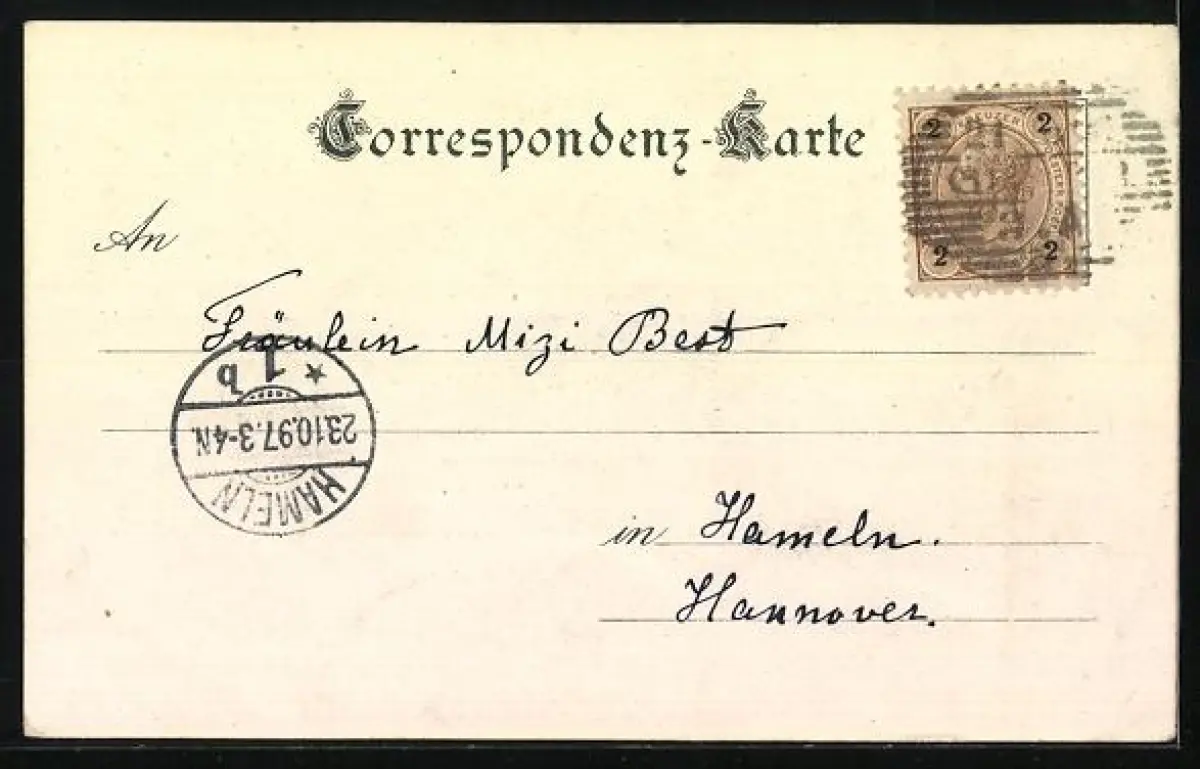 Correspondenz-Karte
2 KREUZER 2
2 2
An
Fräulein Mizi Best
1 b
23.10.97.3-4N.
HAMELN
in Hameln.
Hannover.